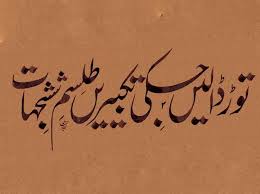 توڑ ڈالیں جسکی تکبیریں طلسمِ شش جہات